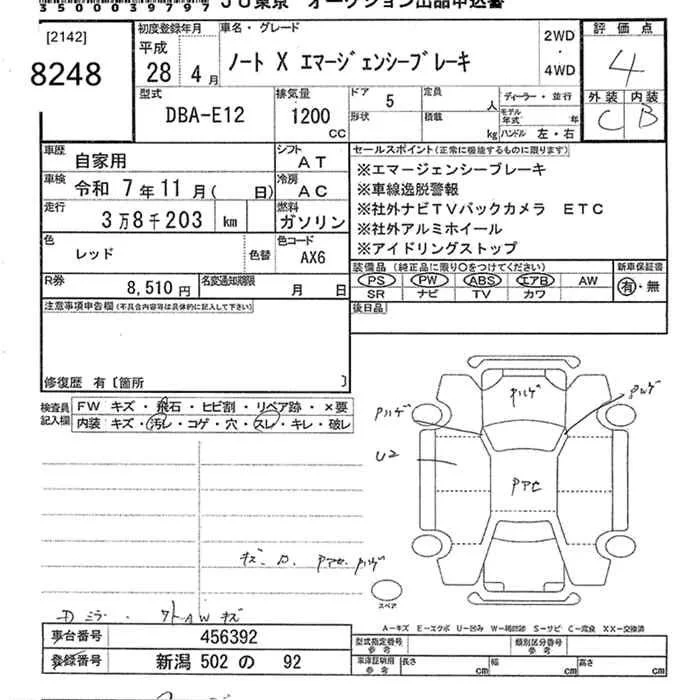 35000039797 JU東京 オークション出品申込書
[2142]
8248
初度登録年月
平成
28 4月
車名・グレード
ノート X エマージェンシーブレーキ
2WD
・
4WD
評価点
4
外装 内装
C B
型式
DBA-E12
排気量
1200
CC
ドア 5
形状
定員 人
積載 kg
ディーラー・並行
モデル年式 年
ハンドル 左・右
車歴 自家用
シフト AT
車検 令和 7年11月( 日)
冷房 AC
走行 3万8千203 km
燃料 ガソリン
色 レッド
色替
色コード AX6
R券 8,510円
名変通知期限 月 日
セールスポイント(正常に機能するものに限ります)
※エマージェンシーブレーキ
※車線逸脱警報
※社外ナビTVバックカメラ ETC
※社外アルミホイール
※アイドリングストップ
装備品(純正品に限り○をつけてください)
PS PW ABS エアB AW
SR ナビ TV カワ
新車保証書
有・無
後日品
注意事項申告欄(不具合内容等は具体的に記入して下さい)
修復歴 有〔箇所 〕
検査員記入欄
FW キズ・飛石・ヒビ割・リペア跡・×要
内装 キズ・汚レ・コゲ・穴・スレ・キレ・破レ
Pハゲ
Pハゲ
Pハゲ
U2
Pアセ
キズ. カ. Pアセ. Pハゲ
Dミラー. ソトAWキズ
スペア
A-キズ E-エクボ U-凹み W-補修跡 S-サビ C-腐食 XX-交換済
車台番号 456392
登録番号 新潟 502 の 92
型式指定番号
参考
類別区分番号
参考
車庫証明用
参考
長さ cm
幅 cm
高さ cm